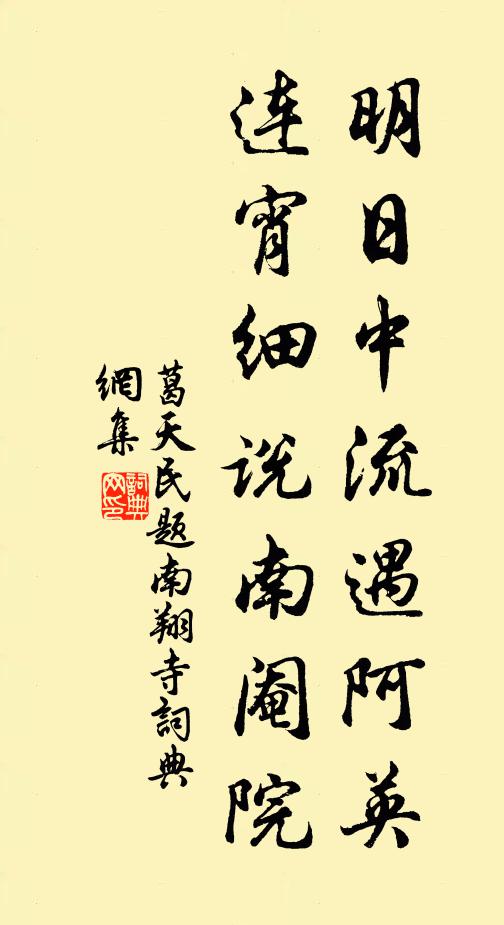 明日中流遇阿英
连宵细说南阇院
葛天民题南翔寺詞典
網集
詞典
网印